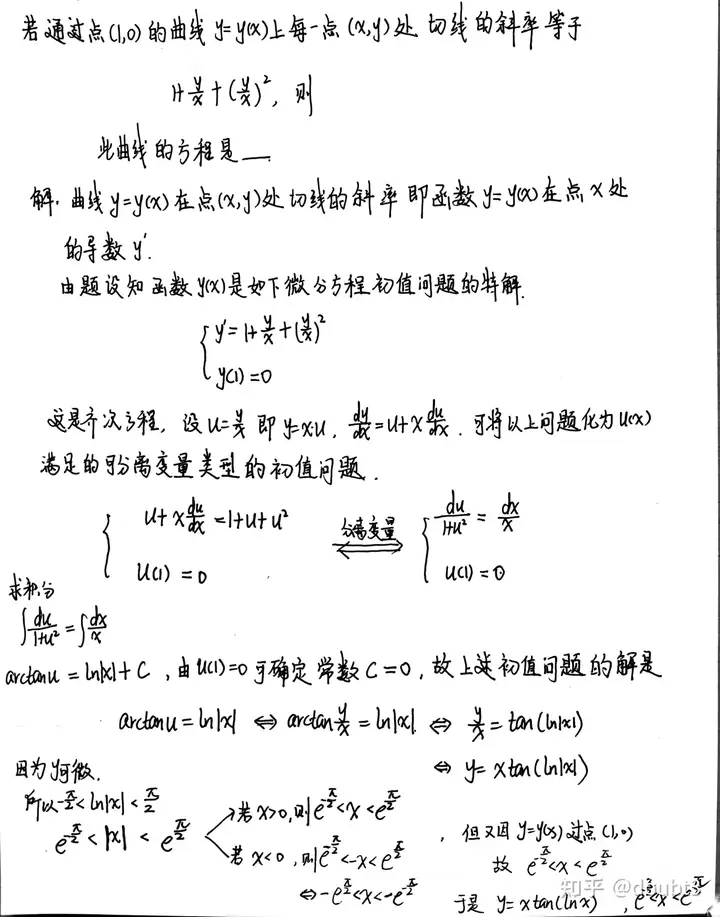 若通过点(1,0)的曲线 y=y(x)上每一点 (x,y)处 切线的斜率等于
1+y/x+(y/x)²，则
此曲线的方程是__
解. 曲线 y=y(x)在点(x,y)处切线的斜率即函数 y=y(x)在点x处
的导数 y'.
由题设知函数y(x)是如下微分方程初值问题的特解.
{ y'=1+y/x+(y/x)²
y(1)=0
这是齐次方程，设 u=y/x 即 y=x·u, dy/dx=u+x du/dx. 可将以上问题化为u(x)
满足的可分离变量类型的初值问题.
{ u+x du/dx=1+u+u² 分离变量 ⟺ { du/(1+u²)=dx/x
u(1)=0 u(1)=0
求积分
∫du/(1+u²)=∫dx/x
arctanu=ln|x|+C，由u(1)=0可确定常数C=0，故上述初值问题的解是
arctanu=ln|x| ⇔ arctan y/x=ln|x| ⇔ y/x=tan(ln|x|)
⇔ y=xtan(ln|x|)
因为y可微.
所以-π/2<ln|x|<π/2
e^(-π/2)<|x|<e^(π/2)
若x>0,则e^(-π/2)<x<e^(π/2)
若x<0,则e^(-π/2)<-x<e^(π/2)
⇔-e^(π/2)<x<-e^(-π/2)
，但又因y=y(x)过点(1,0)
故 e^(-π/2)<x<e^(π/2)
于是 y=xtan(lnx)
知乎 @doubt